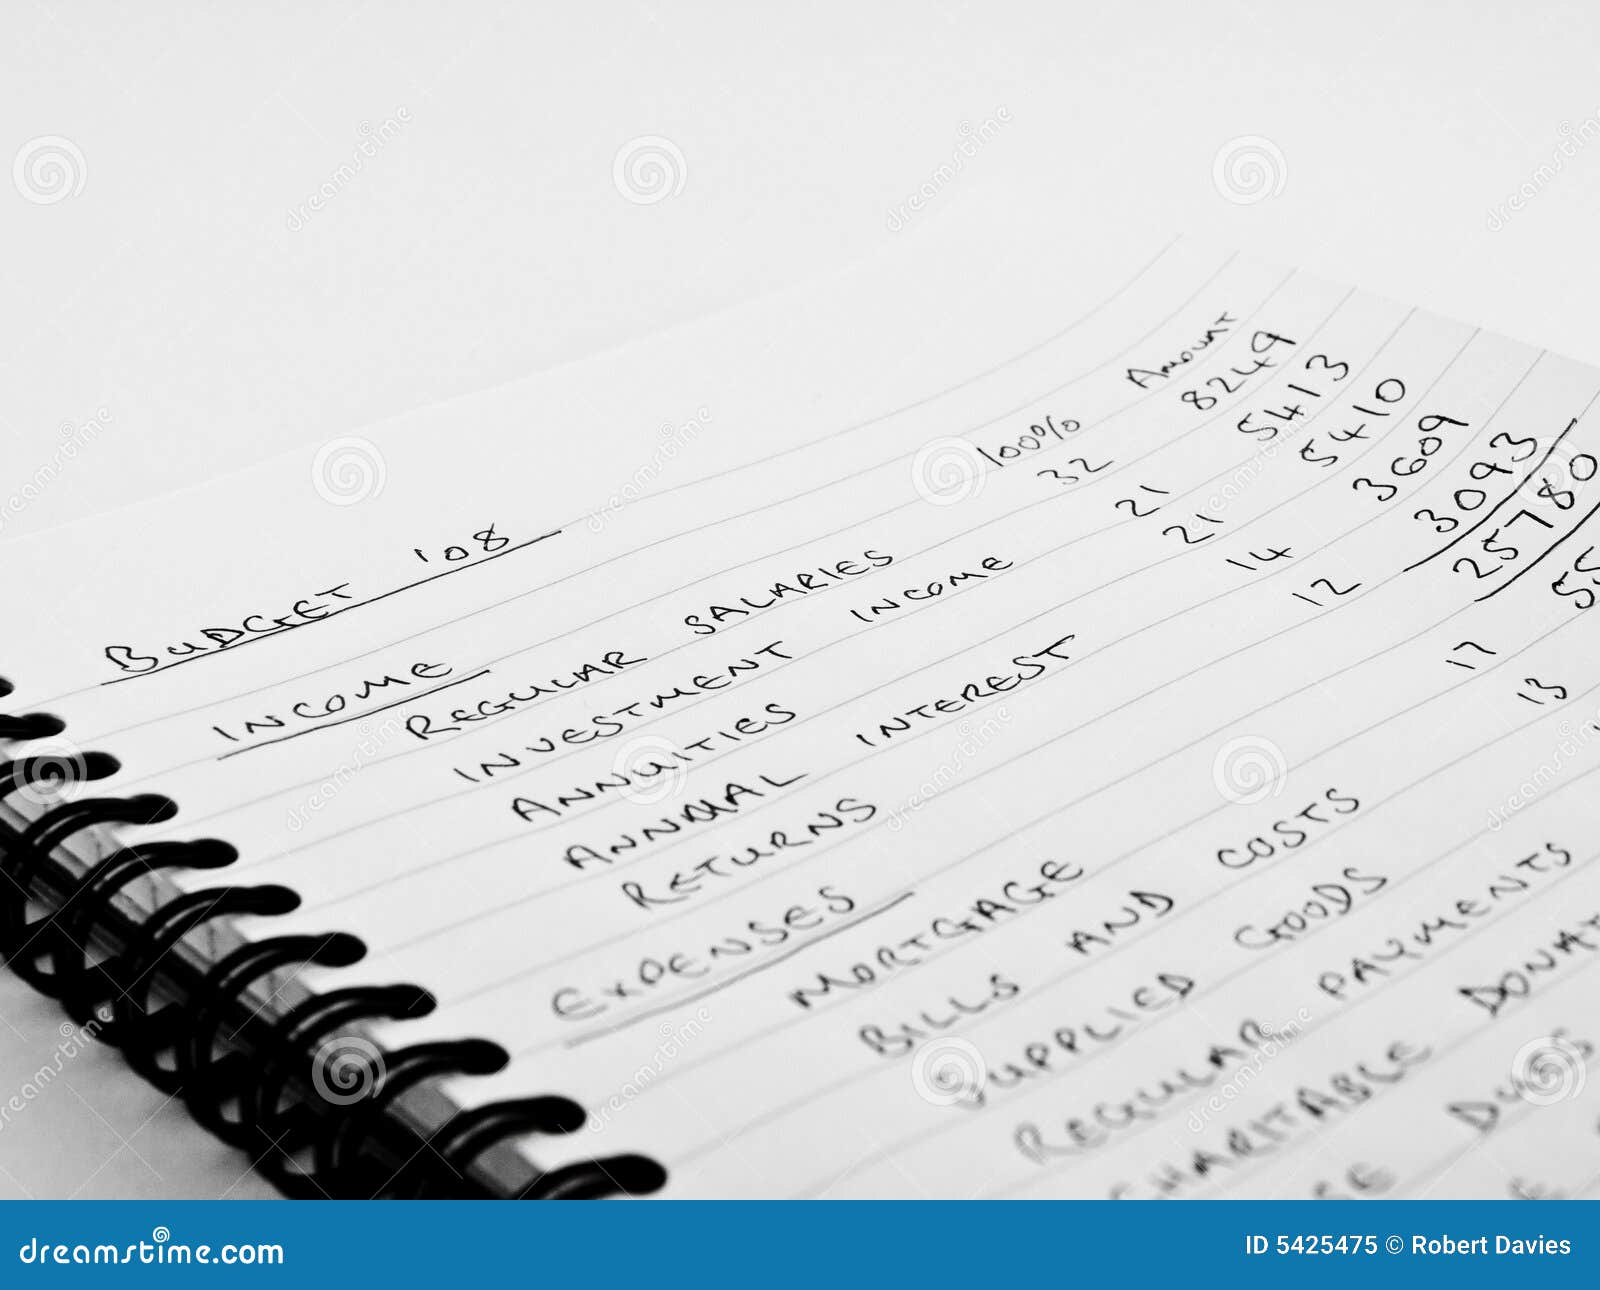 BUDGET '08
INCOME 100% Amount
REGULAR SALARIES 32 8249
INVESTMENT INCOME 21 5413
ANNUITIES 21 5410
ANNUAL INTEREST 14 3609
RETURNS 12 3093
25780
EXPENSES
MORTGAGE 17 55
BILLS AND COSTS 13
SUPPLIED GOODS
REGULAR PAYMENTS
CHARITABLE DONAT
DUES
dreamstime.com ID 5425475 © Robert Davies